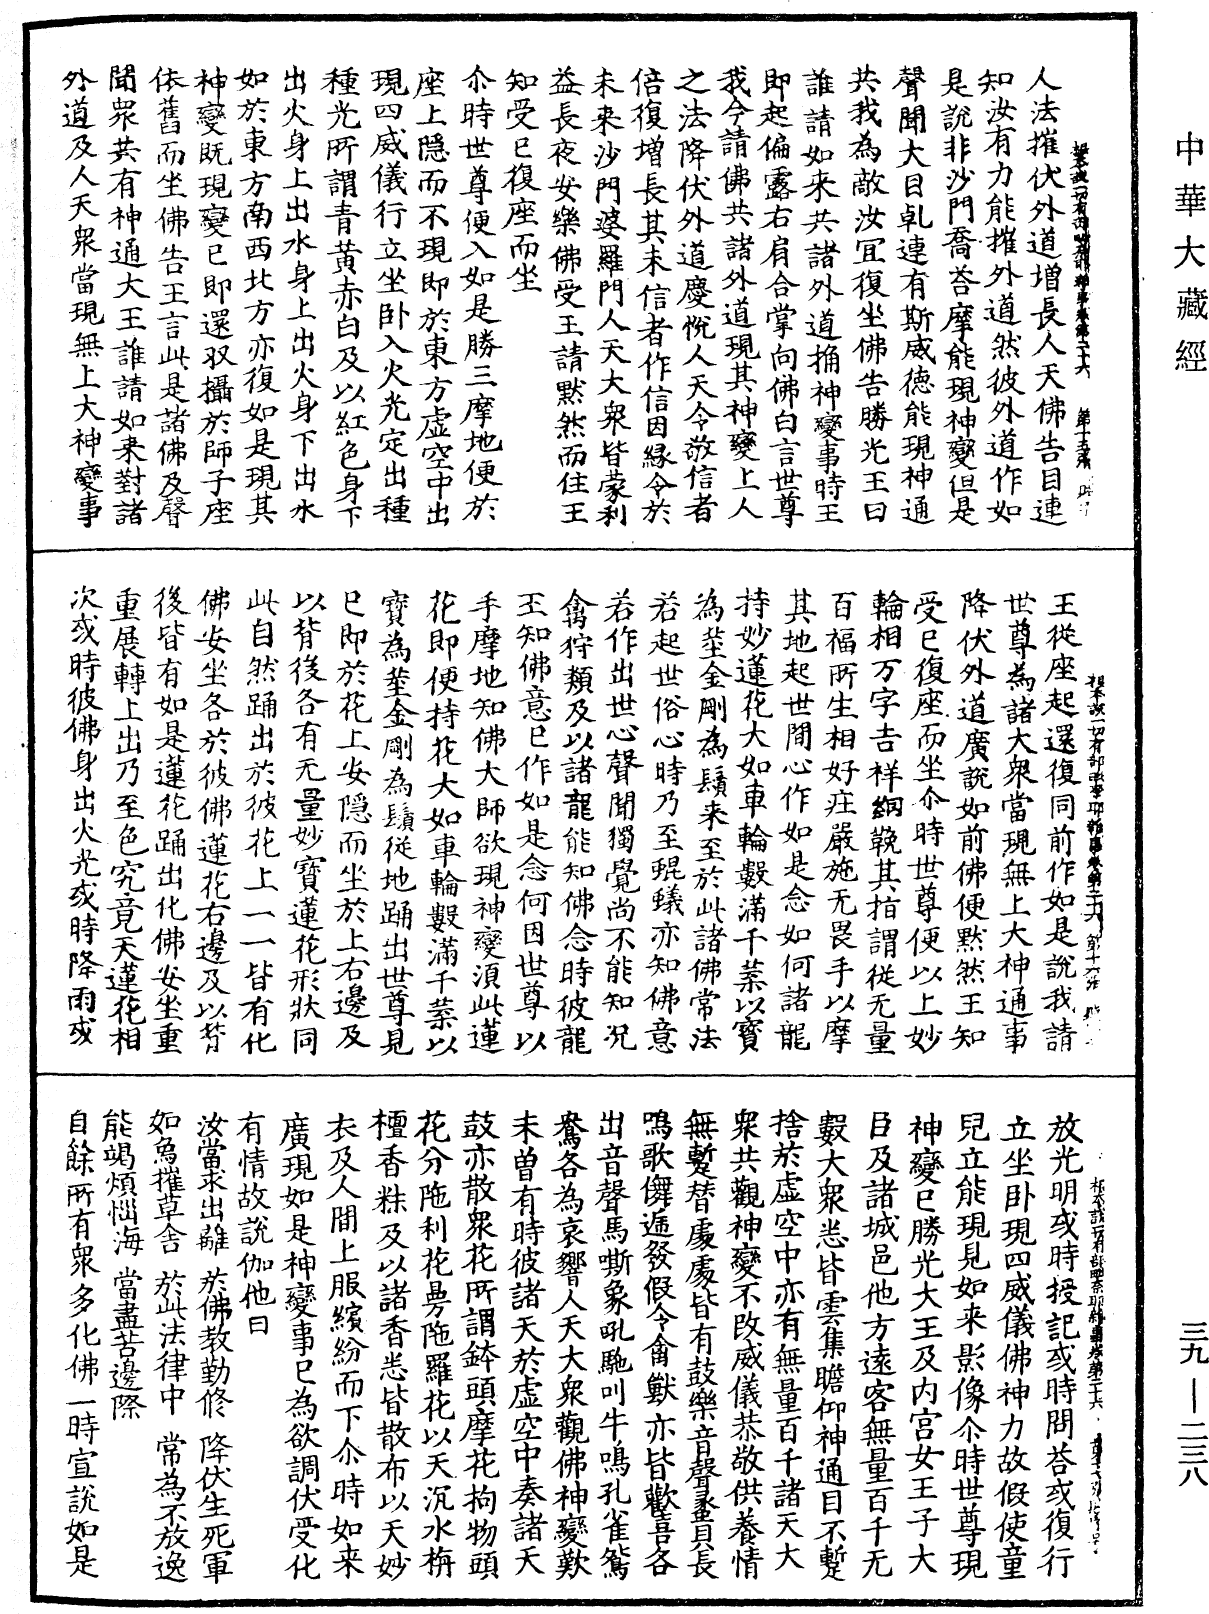 中華大藏經
人法摧伏外道增長人天佛告目連
知汝有力能摧外道然彼外道作如
是說非沙門喬荅摩能現神變但是
聲聞大目乹連有斯威德能現神通
共我為敵汝冝復坐佛告勝光王曰
誰請如來共諸外道捔神變事時王
即起偏露右肩合掌向佛白言世尊
我今請佛共諸外道現其神變上人
之法降伏外道慶悅人天令敬信者
倍復增長其未信者作信因緣令於
未來沙門婆羅門人天大衆皆蒙利
益長夜安樂佛受王請默然而住王
知受已復座而坐
尒時世尊便入如是勝三摩地便於
座上隱而不現即於東方虛空中出
現四威儀行立坐卧入火光定出種
種光所謂青黃赤白及以紅色身下
出火身上出水身上出火身下出水
如於東方南西北方亦復如是現其
神變既現變已即還収攝於師子座
依舊而坐佛告王言此是諸佛及聲
聞衆共有神通大王誰請如来對諸
外道及人天衆當現無上大神變事
王從座起還復同前作如是說我請
世尊為諸大衆當現無上大神通事
降伏外道廣說如前佛便默然王知
受已復座而坐尒時世尊便以上妙
輪相万字吉祥網鞔其指謂從无量
百福所生相好庄嚴施无畏手以摩
其地起世間心作如是念如何諸龍
持妙蓮花大如車輪數滿千葉以寶
為莖金剛為鬚来至於此諸佛常法
若起世俗心時乃至蜫蟻亦知佛意
若作出世心聲聞獨覺尚不能知况
禽狩類及以諸龍能知佛念時彼龍
王知佛意已作如是念何因世尊以
手摩地知佛大師欲現神變湏此蓮
花即便持花大如車輪數滿千葉以
寶為莖金剛為鬚從地踊出世尊見
已即於花上安隱而坐於上右邊及
以背後各有无量妙寶蓮花形狀同
此自然踊出於彼花上一一皆有化
佛安坐各於彼佛蓮花右邊及以背
後皆有如是蓮花踊出化佛安坐重
重展轉上出乃至色究竟天蓮花相
次或時彼佛身出火光或時降雨或
放光明或時授記或時問荅或復行
立坐卧現四威儀佛神力故假使童
兒立能現見如来影像尒時世尊現
神變已勝光大王及内宮女王子大
臣及諸城邑他方遠客無量百千无
數大衆悉皆雲集瞻仰神通目不蹔
捨於虛空中亦有無量百千諸天大
衆共觀神變不改威儀恭敬供養情
無蹔替處處皆有鼓樂音聲䗍貝長
鳴歌儛遞發假令禽獸亦皆歡喜各
出音聲馬嘶象吼馳叫牛鳴孔雀鴛
鴦各為哀響人天大衆觀佛神變歎
未曾有時彼諸天於虛空中奏諸天
鼓亦散衆花所謂鉢頭摩花拘物頭
花分陁利花曼陁羅花以天沉水栴
檀香粖及以諸香悉皆散布以天妙
衣及人間上服繽紛而下尒時如来
廣現如是神變事已為欲調伏受化
有情故說伽他曰
汝當求出離　於佛教勤修　降伏生死軍
如象摧草舍　於此法律中　常為不放逸
能竭煩惱海　當盡苦邊際
自餘所有衆多化佛一時宣說如是
三九—二三八